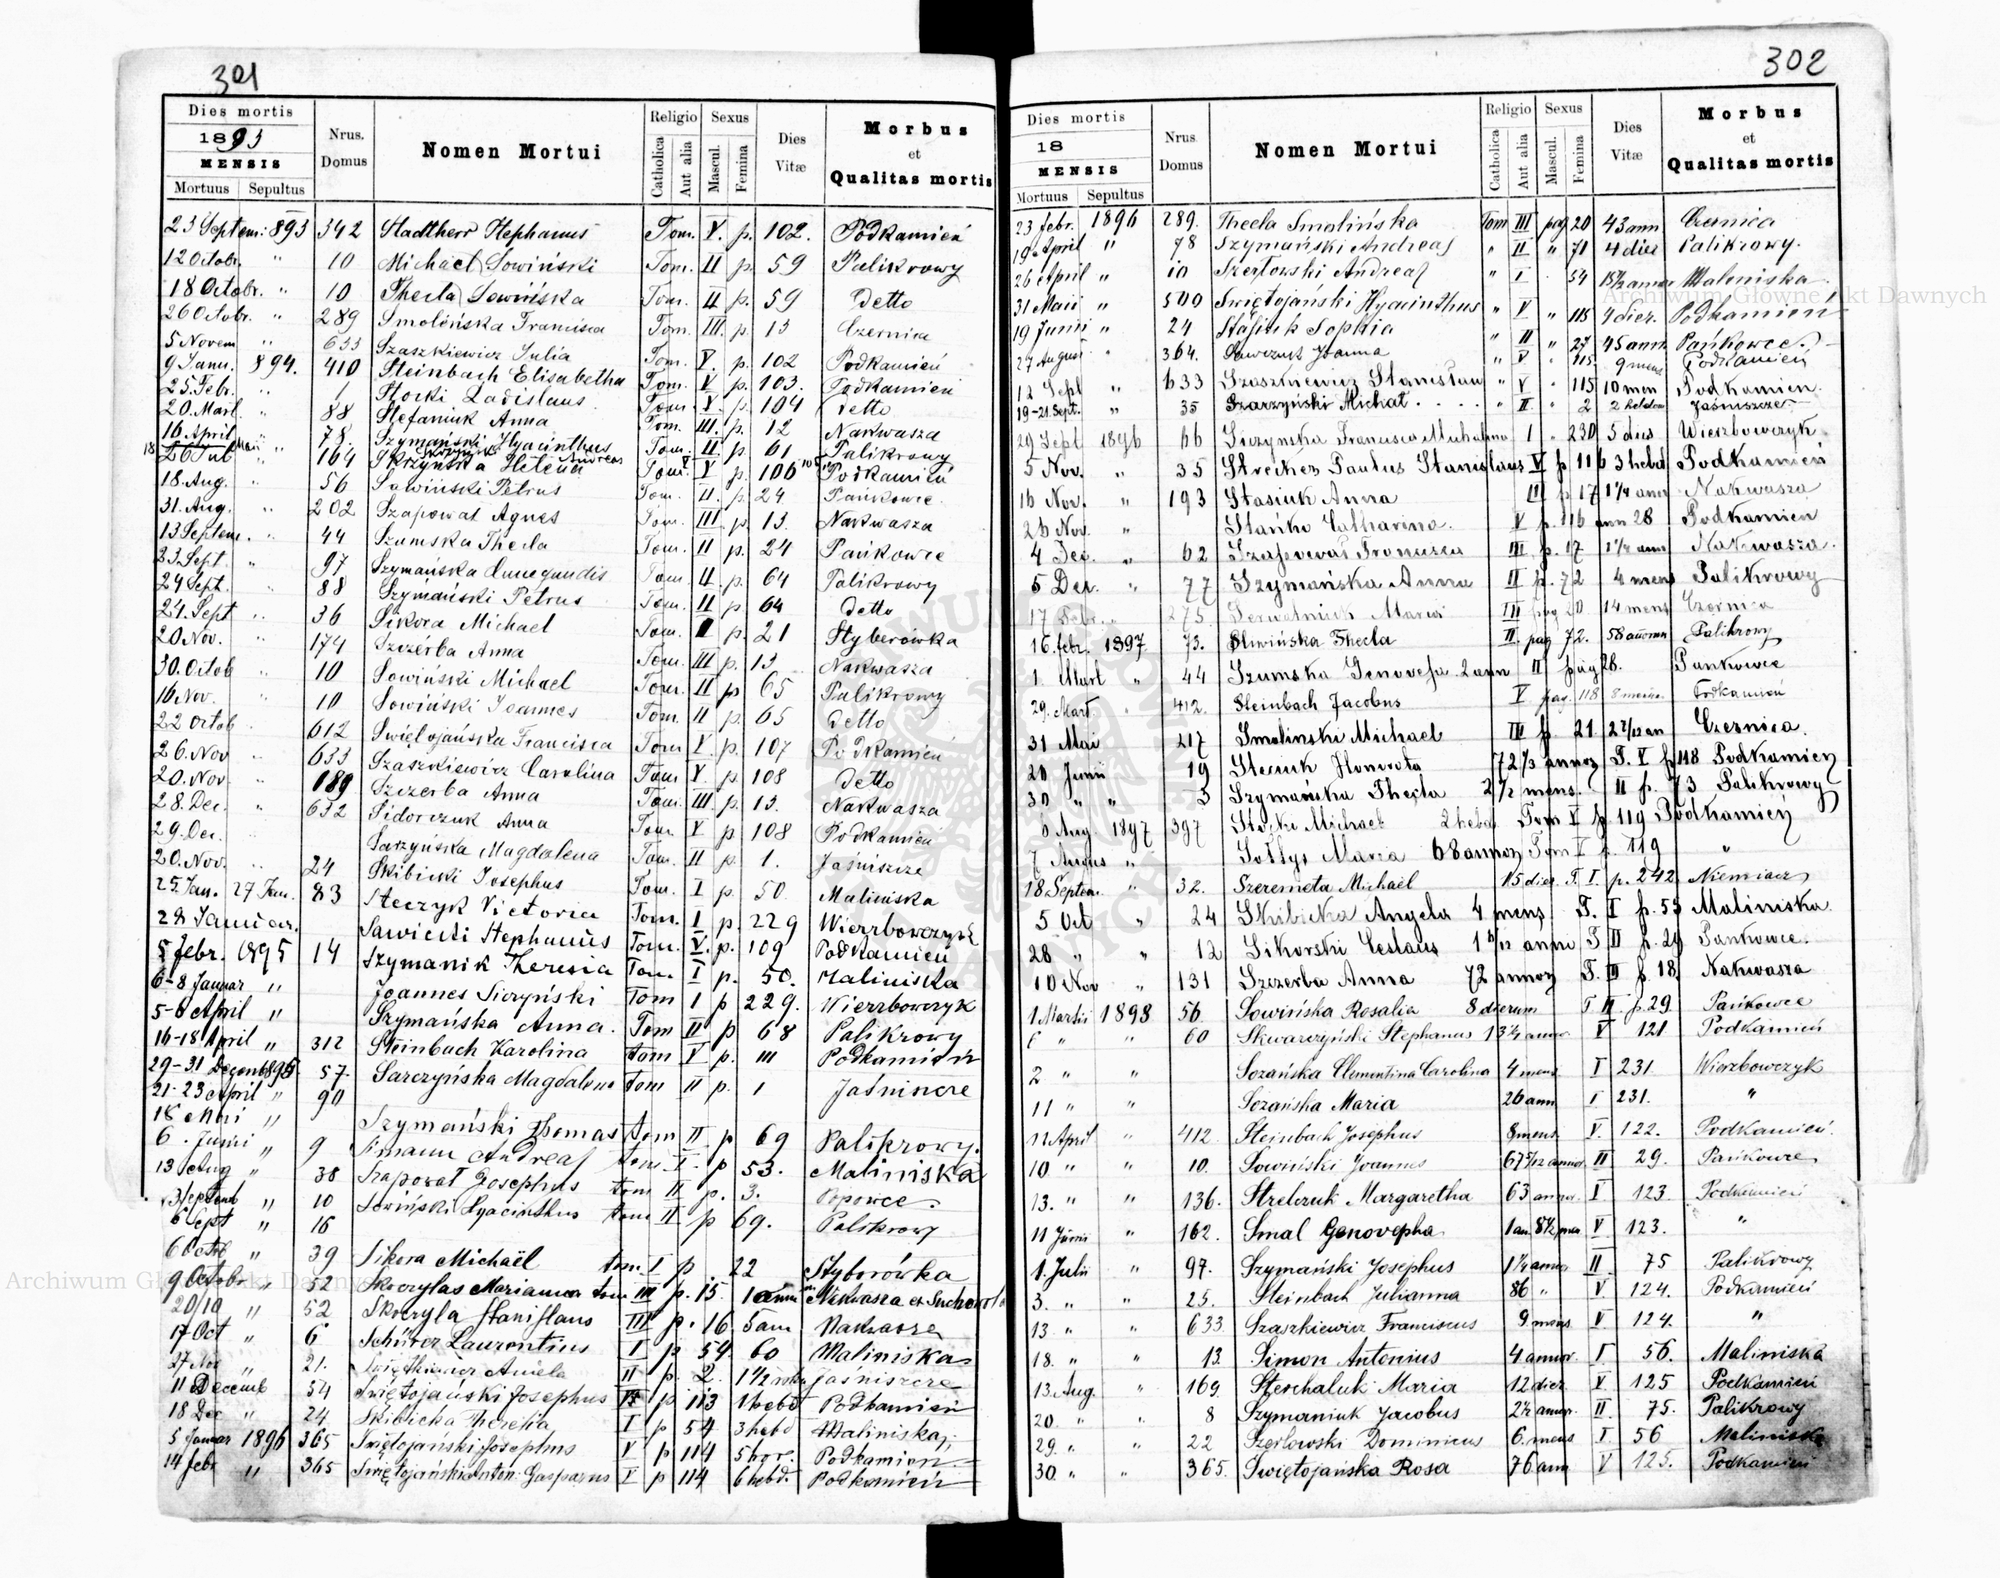 301
Dies mortis
1893
MENSIS
Mortuus Sepultus
Nrus. Domus
Nomen Mortui
Religio
Catholica
Aut alia
Sexus
Mascul.
Femina
Dies Vitæ
Morbus et Qualitas mortis
23 Septem: 893 342 Stadtherr Stephanus Tom. V. p. 102. Podkamień
12 Octobr. " 10 Michael Sowiński Tom. II p. 59 Palikrowy
18 Octobr. " 10 Thecla Sowińska Tom. II p. 59 Detto
26 Octobr. " 289 Smolińska Francisca Tom. III. p. 13 Czernica
5 Novem 633 Szaszkiewicz Julia Tom. V. p. 102 Podkamień
9 Janu. 894. 410 Steinbach Elisabetha Tom. V p. 103. Podkamień
25. Febr. " 1 Storki Ladislaus Tom. V. p. 104 detto
20. Mart. " 88 Stefaniuk Anna Tom. III. p. 12 Nakwasza
16 April " 78. Szymański Hyacinthus Andreas Tom. II p. 61 Palikrowy
164 Skrzyńska Helena Tom. V p. 106 Podkamień
18. Aug. " 56 Sawiński Petrus Tom. II. p. 24 Pańkowce
31. Aug. " 202 Szapował Agnes Tom. III p. 13. Nakwasza
13 Septem. " 44 Szumska Thecla Tom. II p. 24 Pańkowce
23. Sept. " 97 Szymańska Cunegundis Tom. II. p. 64 Palikrowy
24 Sept. " 88 Szymański Petrus Tom. II p. 64 detto
24. Sept " 36 Sikora Michael Tom. II p. 21 Styberówka
20 Nov. " 174 Szczérba Anna Tom. III p. 13 Nakwasza
30. Octob " 10 Sowiński Michael Tom. II p 65 Palikrowy
16 Nov. " 10 Sowiński Joannes Tom. II p. 65 detto
22 Octob " 612 Swiętojańska Francisca Tom V p. 107 Podkamień
26. Nov " 633 Szaszkiewicz Carolina Tom. V. p. 108 detto
20. Nov " 189 Szczerba Anna Tom. III p. 13. Nakwasza
28. Dec. " 632 Sidorczuk Anna Tom V p. 108 Podkamień
29. Dec. Sarzyńska Magdalena Tom. II p. 1. Jaśniszcze
20. Nov. " 24 Skibicki Josephus Tom. I p. 50. Maliniska
25. Jan. 27 Jan. 83 Steczyk Victoria Tom. I p. 229 Wierzbowczyk
28 Januar. Sawicki Stephanus Tom. V. p. 109 Podkamień
5 febr. 1895 14 Szymanik Theresia Tom. I p. 50. Maliniska
6-8 Januar " Joannes Siczyński Tom I p 229. Wierzbowczyk
5-6 April " Szymańska Anna. Tom II p 68 Palikrowy
16-18 April " 312 Steinbach Karolina tom V p. 111 Podkamień
29-31 Decemb 1895 57. Sarczyńska Magdalena tom II p. 1 Jaśnincze
21-23 April " 90
18 Mai " Szymański Thomas tom II p 69 Palikrowy.
6. Junii " 9 Simann Andreas tom I p 53. Maliniska
13 Aug " 38 Szapował Josephus tom II p. 3. Popowce
" 10 Sowiński Hyacinthus tom II p 69. Palikrowy
6 Sept " 16
6 Octob " 39 Sikora Michaël tom I p 22 Styborówka
9 Octobr " 52 Skoczylas Marianna tom III p. 15. Nakwasza et Suchowola
20/10 " 52 Skoczyla Stanislaus III p. 16 5 ann Nakwasza
17 Oct " 6 Schürer Laurentius I p 54. 60 Maliniska
27 Nov " 21. Amiela II p. 2. 1 1/2 Jaśniszcze
11 Decemb 54 Swiętojański Josephus V p 113 1 hebd Podkamień
18 Dec " 24 Skibicka Theresia I p 54 3 hebd Maliniska
5 Januar 1896 365 Swiętojański Josephus V p 114 5 hor. Podkamień
14 febr " 365 Swiętojański Anton. Gasparus V p 114 6 hebd. Podkamień
302
Dies mortis
18
MENSIS
Mortuus Sepultus
Nrus Domus
Nomen Mortui
Religio
Catholica
Aut alia
Sexus
Mascul.
Femina
Dies Vitæ
Morbus et Qualitas mortis
23 febr. 1896 289. Thecla Smolińska Tom III pag 20 43 ann Czernica
19 April " 78 Szymański Andreas " II " 71 4 dier Palikrowy.
26 April " 10 Szerłowski Andreas " I 54 15 1/2 annor Maleniska
31 Maii " 500 Swiętojański Hyacinthus " V " 115 4 dier. Podkamień
19 Junii " 24 Stasiuk Sophia " II " 27 45 ann Pańkowce.
27 August 364. Sawczuk Joanna " V " 115. 9 mens Podkamień
12 Sept " 633 Szaszkiewicz Stanisław " V " 115 10 men Podkamień.
19-21 Sept. " 35 Szarzyński Michał . . . . " II. " 2 2 hebdom Jaśniszcze
29 Sept 1896 66 Siczynska Francisca Michalina I " 230 5 dies Wierzbowczyk
5 Nov. " 35 Strecker Paulus Stanislaus V p 116 3 hebd Podkamień
16 Nov. " 193 Stasiuk Anna III p 17 1 1/4 ann Nakwasza
26 Nov. " Stańko Catharina. V p. 116 ann 28 Podkamień
4 Dec. " 62 Szapował Francisca III. p. 17 1 1/2 anno Nakwasza.
5 Dec. " 77 Szymańska Anna II p. 72 4 mens Palikrowy
17 Febr. " 275. Serwetniuk Maria III pag 20 14 mens Czernica
16. febr. 1897 73. Sliwińska Thecla II. pag 72. 58 annorum Palikrowy
1. Mart " 44 Szumska Genovefa 2 ann II pag 28. Pankowce
29. Mart. " 412. Steinbach Jacobus V pag. 118 8 mens. Podkamień
31 Mai 217 Smolinski Michael III p. 21. 2 7/12 an Czernica.
20 Junii 19 Stasiuk Honorata 72 1/3 annor T. V p 118 Podkamień
30 " " 3 Szymańska Thecla 2 1/2 mens. II p. 73 Palikrowy
6 Aug. 1897 397 Stocki Michael 2 hebd Tom V p 119 Podkamień
7 Augus " Sołtys Maria 68 annor Tom V p. 119 "
18 Septem. " 32. Szeremeta Michael 15 dier. T. I. p. 242 Niemiacz
5 Oct " 24 Skibicka Angela 4 mens T. I p. 55 Maliniska.
28 " " 12 Sikorski Ceslaus T II p. 29 Pankowce.
10 Nov " 131 Szczerba Anna 72 annor T. III p. 18. Nakwasza
1. Martii 1898 56. Sowińska Rosalia 8 dierum T II. p. 29. Pańkowce
6 " " 60 Skwarczyński Stephanus 13 1/2 annor V 121 Podkamień
2 " " Sozańska Clementina Carolina 4 mens I 231. Wierzbowczyk
11 " " Sozańska Maria 26 ann I 231. "
12 April " 412. Steinbach Josephus 8 mens V. 122. Podkamień.
10 " " 10. Sowiński Joannes 67 5/12 annor. II 29. Pańkowce
13. " " 136. Strelczuk Margaretha 63 annor. I 123 Podkamień
11 Junii " 162. Smal Genovepha 1 an. 8 1/2 men V 123. "
1. Julii " 97. Szymański Josephus 1 1/4 annor II 75 Palikrowy
3. " " 25. Steinbach Julianna 86 " V 124. Podkamień
13 " " 633. Szaszkiewicz Franciscus 9 mens V. 124. "
18. " " 13. Simon Antonius 4 annor. I 56. Maliniska
13. Aug. " 169. Sterchaluk Maria 12 dier. V 125 Podkamień
20. " " 8 Szymaniuk Jacobus 2 1/2 annor. II 75. Palikrowy
29. " " 22 Szerłowski Dominicus 6. mens I. 56 Maliniska
30. " " 365. Swiętojańska Rosa 76 ann V 125. Podkamień
Archiwum Główne Akt Dawnych
Archiwum Główne Akt Dawnych